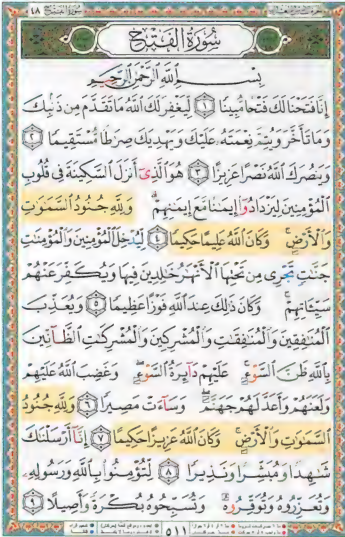 سُورَةُ الْفَتْحِ ٤٨
سُورَةُ الْفَتْحِ
بِسْمِ اللَّهِ الرَّحْمَٰنِ الرَّحِيمِ
إِنَّا فَتَحْنَا لَكَ فَتْحًا مُّبِينًا ١ لِّيَغْفِرَ لَكَ اللَّهُ مَا تَقَدَّمَ مِن ذَنۢبِكَ
وَمَا تَأَخَّرَ وَيُتِمَّ نِعْمَتَهُۥ عَلَيْكَ وَيَهْدِيَكَ صِرَٰطًا مُّسْتَقِيمًا ٢
وَيَنصُرَكَ اللَّهُ نَصْرًا عَزِيزًا ٣ هُوَ الَّذِىٓ أَنزَلَ السَّكِينَةَ فِى قُلُوبِ
الْمُؤْمِنِينَ لِيَزْدَادُوٓا۟ إِيمَٰنًا مَّعَ إِيمَٰنِهِمْ ۗ وَلِلَّهِ جُنُودُ السَّمَٰوَٰتِ
وَالْأَرْضِ ۚ وَكَانَ اللَّهُ عَلِيمًا حَكِيمًا ٤ لِّيُدْخِلَ الْمُؤْمِنِينَ وَالْمُؤْمِنَٰتِ
جَنَّٰتٍ تَجْرِى مِن تَحْتِهَا الْأَنْهَٰرُ خَٰلِدِينَ فِيهَا وَيُكَفِّرَ عَنْهُمْ
سَيِّـَٔاتِهِمْ ۚ وَكَانَ ذَٰلِكَ عِندَ اللَّهِ فَوْزًا عَظِيمًا ٥ وَيُعَذِّبَ
الْمُنَٰفِقِينَ وَالْمُنَٰفِقَٰتِ وَالْمُشْرِكِينَ وَالْمُشْرِكَٰتِ الظَّآنِّينَ
بِاللَّهِ ظَنَّ السَّوْءِ ۚ عَلَيْهِمْ دَآئِرَةُ السَّوْءِ ۖ وَغَضِبَ اللَّهُ عَلَيْهِمْ
وَلَعَنَهُمْ وَأَعَدَّ لَهُمْ جَهَنَّمَ ۖ وَسَآءَتْ مَصِيرًا ٦ وَلِلَّهِ جُنُودُ
السَّمَٰوَٰتِ وَالْأَرْضِ ۚ وَكَانَ اللَّهُ عَزِيزًا حَكِيمًا ٧ إِنَّآ أَرْسَلْنَٰكَ
شَٰهِدًا وَمُبَشِّرًا وَنَذِيرًا ٨ لِّتُؤْمِنُوا۟ بِاللَّهِ وَرَسُولِهِۦ
وَتُعَزِّرُوهُ وَتُوَقِّرُوهُ ۚ وَتُسَبِّحُوهُ بُكْرَةً وَأَصِيلًا ٩
٥١١